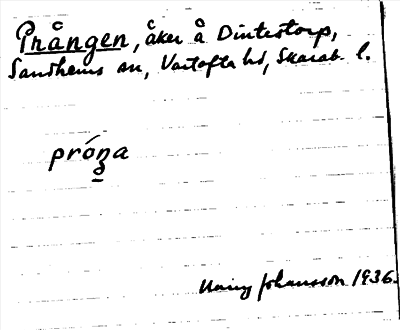 Prången, åker å Dintestorp,
Sandhems sn, Vartofta hd, Skarab. l.
próna
Johansson 1936.